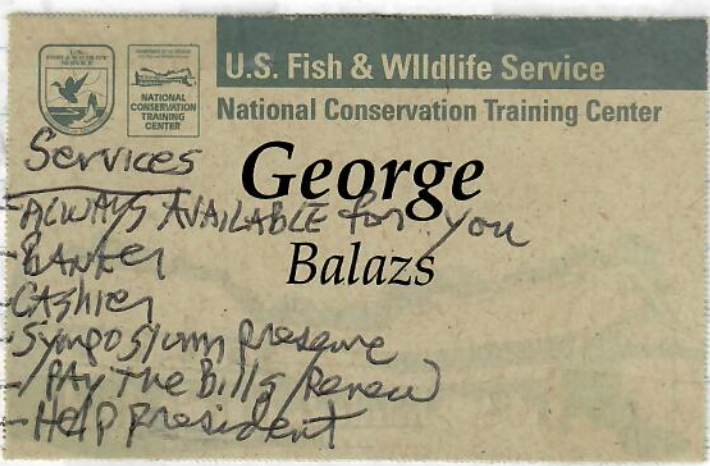 U.S.
FISH & WILDLIFE
SERVICE
NATIONAL
CONSERVATION
TRAINING
CENTER
U.S. Fish & WIldlife Service
National Conservation Training Center
George
Balazs
Services
- ALWAYS AVAILABLE for you
- BANKER
- CASHIER
- Symposium
- PAY THE Bills
- HELP President